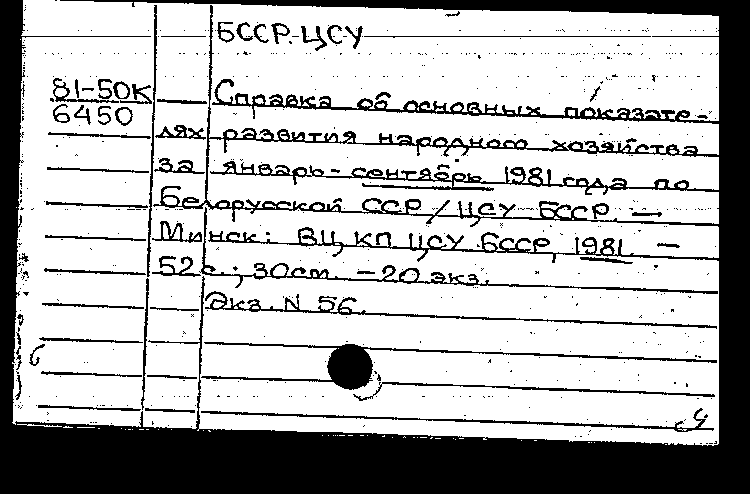 БССР. ЦСУ
81-50К
6450
Справка об основных показате-
лях развития народного хозяйства
за январь-сентябрь 1981 года по
Белорусской ССР / ЦСУ БССР. —
Минск: ВЦ КП ЦСУ БССР, 1981. —
52 с.; 30 см. — 20 экз.
Экз. N 56.